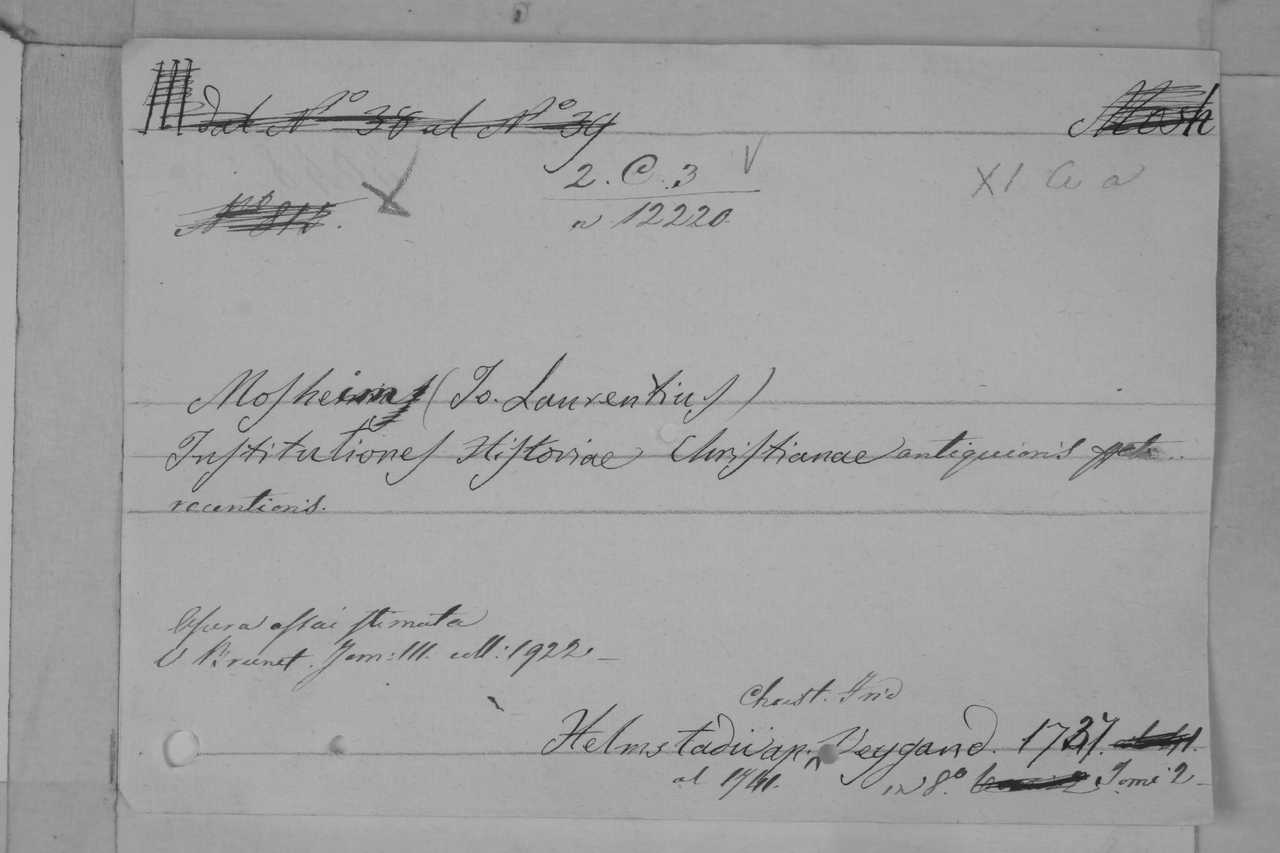 dal Nº 38 al Nº 39 Mosh
2. C. 3 V XI
Nº 815. a 12220
Mosheim (Jo. Laurentius)
Institutiones Historiae Christianae antiquioris et
recentioris.
Opera assai stimata
V Brunet. Tom: III. coll: 1922 –
Christ. Frid
Helmstadii ap. Weygand. 1737.
al 1741. in 8.º Tomi 2 –